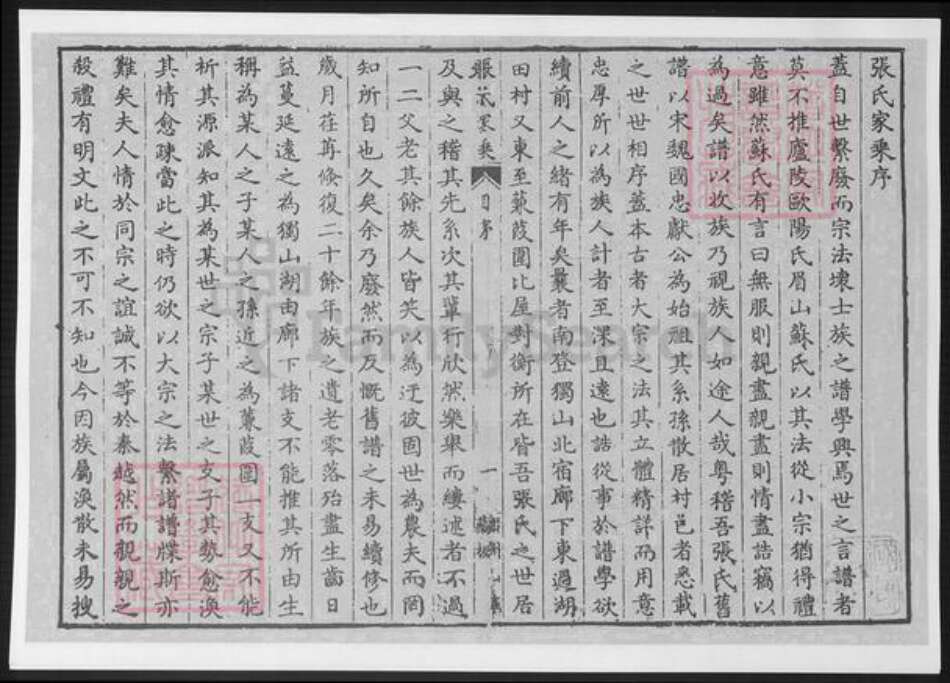 張氏家乘序
蓋自世繫廢而宗法壞士族之譜學興焉世之言譜者
莫不推廬陵歐陽氏眉山蘇氏以其法從小宗猶得禮
意雖然蘇氏有言曰無服則親盡親盡則情盡誥竊以
為過矣譜以收族乃視族人如途人哉粵稽吾張氏舊
譜以宋魏國忠獻公為始祖其系孫散居村邑者悉載
之世世相序蓋本古者大宗之法其立體精詳而用意
忠厚所以為族人計者至深且遠也誥從事於譜學欲
續前人之緒有年矣曩者南登獨山北宿廊下東過湖
田村又東至蒹葭圍比屋對衡所在皆吾張氏之世居
張氏家乘 目序 一
及與之稽其先系次其輩行欣然樂舉而縷述者不過
一二父老其餘族人皆笑以為迂彼固世為農夫而罔
知所自也久矣余乃廢然而反慨舊譜之未易續修也
歲月荏苒倏復二十餘年族之遺老零落殆盡生齒日
益蔓延遠之為獨山湖由廊下諸支不能推其所由生
稱為某人之子某人之孫近之為蒹葭圍一支又不能
析其源派知其為某世之宗子某世之支子其勢愈渙
其情愈疎當此之時仍欲以大宗之法繫諸譜牒斯亦
難矣夫人情於同宗之誼誠不等於秦越然而親親之
殺禮有明文此之不可不知也今因族屬渙散未易搜
FamilySearch